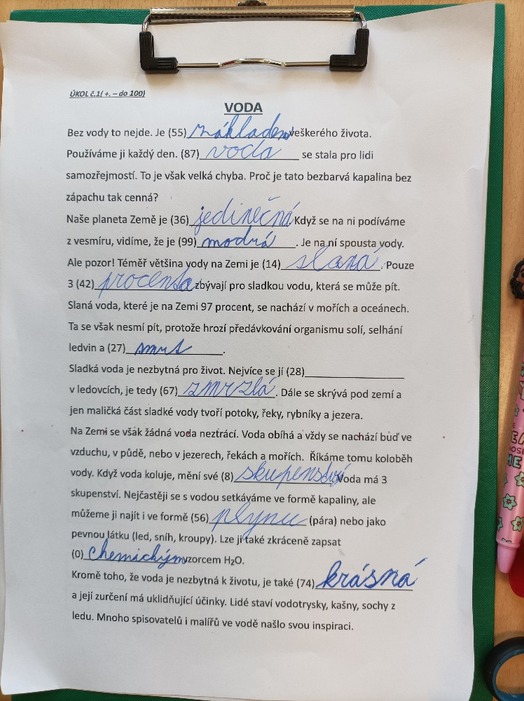 ÚKOL č.1( +. – do 100)
VODA
Bez vody to nejde. Je (55) základem veškerého života.
Používáme ji každý den. (87) voda se stala pro lidi
samozřejmostí. To je však velká chyba. Proč je tato bezbarvá kapalina bez
zápachu tak cenná?
Naše planeta Země je (36) jedinečná Když se na ni podíváme
z vesmíru, vidíme, že je (99) modrá. Je na ní spousta vody.
Ale pozor! Téměř většina vody na Zemi je (14) slaná. Pouze
3 (42) procenta zbývají pro sladkou vodu, která se může pít.
Slaná voda, které je na Zemi 97 procent, se nachází v mořích a oceánech.
Ta se však nesmí pít, protože hrozí předávkování organismu solí, selhání
ledvin a (27) smrt.
Sladká voda je nezbytná pro život. Nejvíce se jí (28)
v ledovcích, je tedy (67) zmrzlá. Dále se skrývá pod zemí a
jen maličká část sladké vody tvoří potoky, řeky, rybníky a jezera.
Na Zemi se však žádná voda neztrácí. Voda obíhá a vždy se nachází buď ve
vzduchu, v půdě, nebo v jezerech, řekách a mořích. Říkáme tomu koloběh
vody. Když voda koluje, mění své (8) skupenství Voda má 3
skupenství. Nejčastěji se s vodou setkáváme ve formě kapaliny, ale
můžeme ji najít i ve formě (56) plynu (pára) nebo jako
pevnou látku (led, sníh, kroupy). Lze ji také zkráceně zapsat
(0) chemickým vzorcem H₂O.
Kromě toho, že voda je nezbytná k životu, je také (74) krásná
a její zurčení má uklidňující účinky. Lidé staví vodotrysky, kašny, sochy z
ledu. Mnoho spisovatelů i malířů ve vodě našlo svou inspiraci.